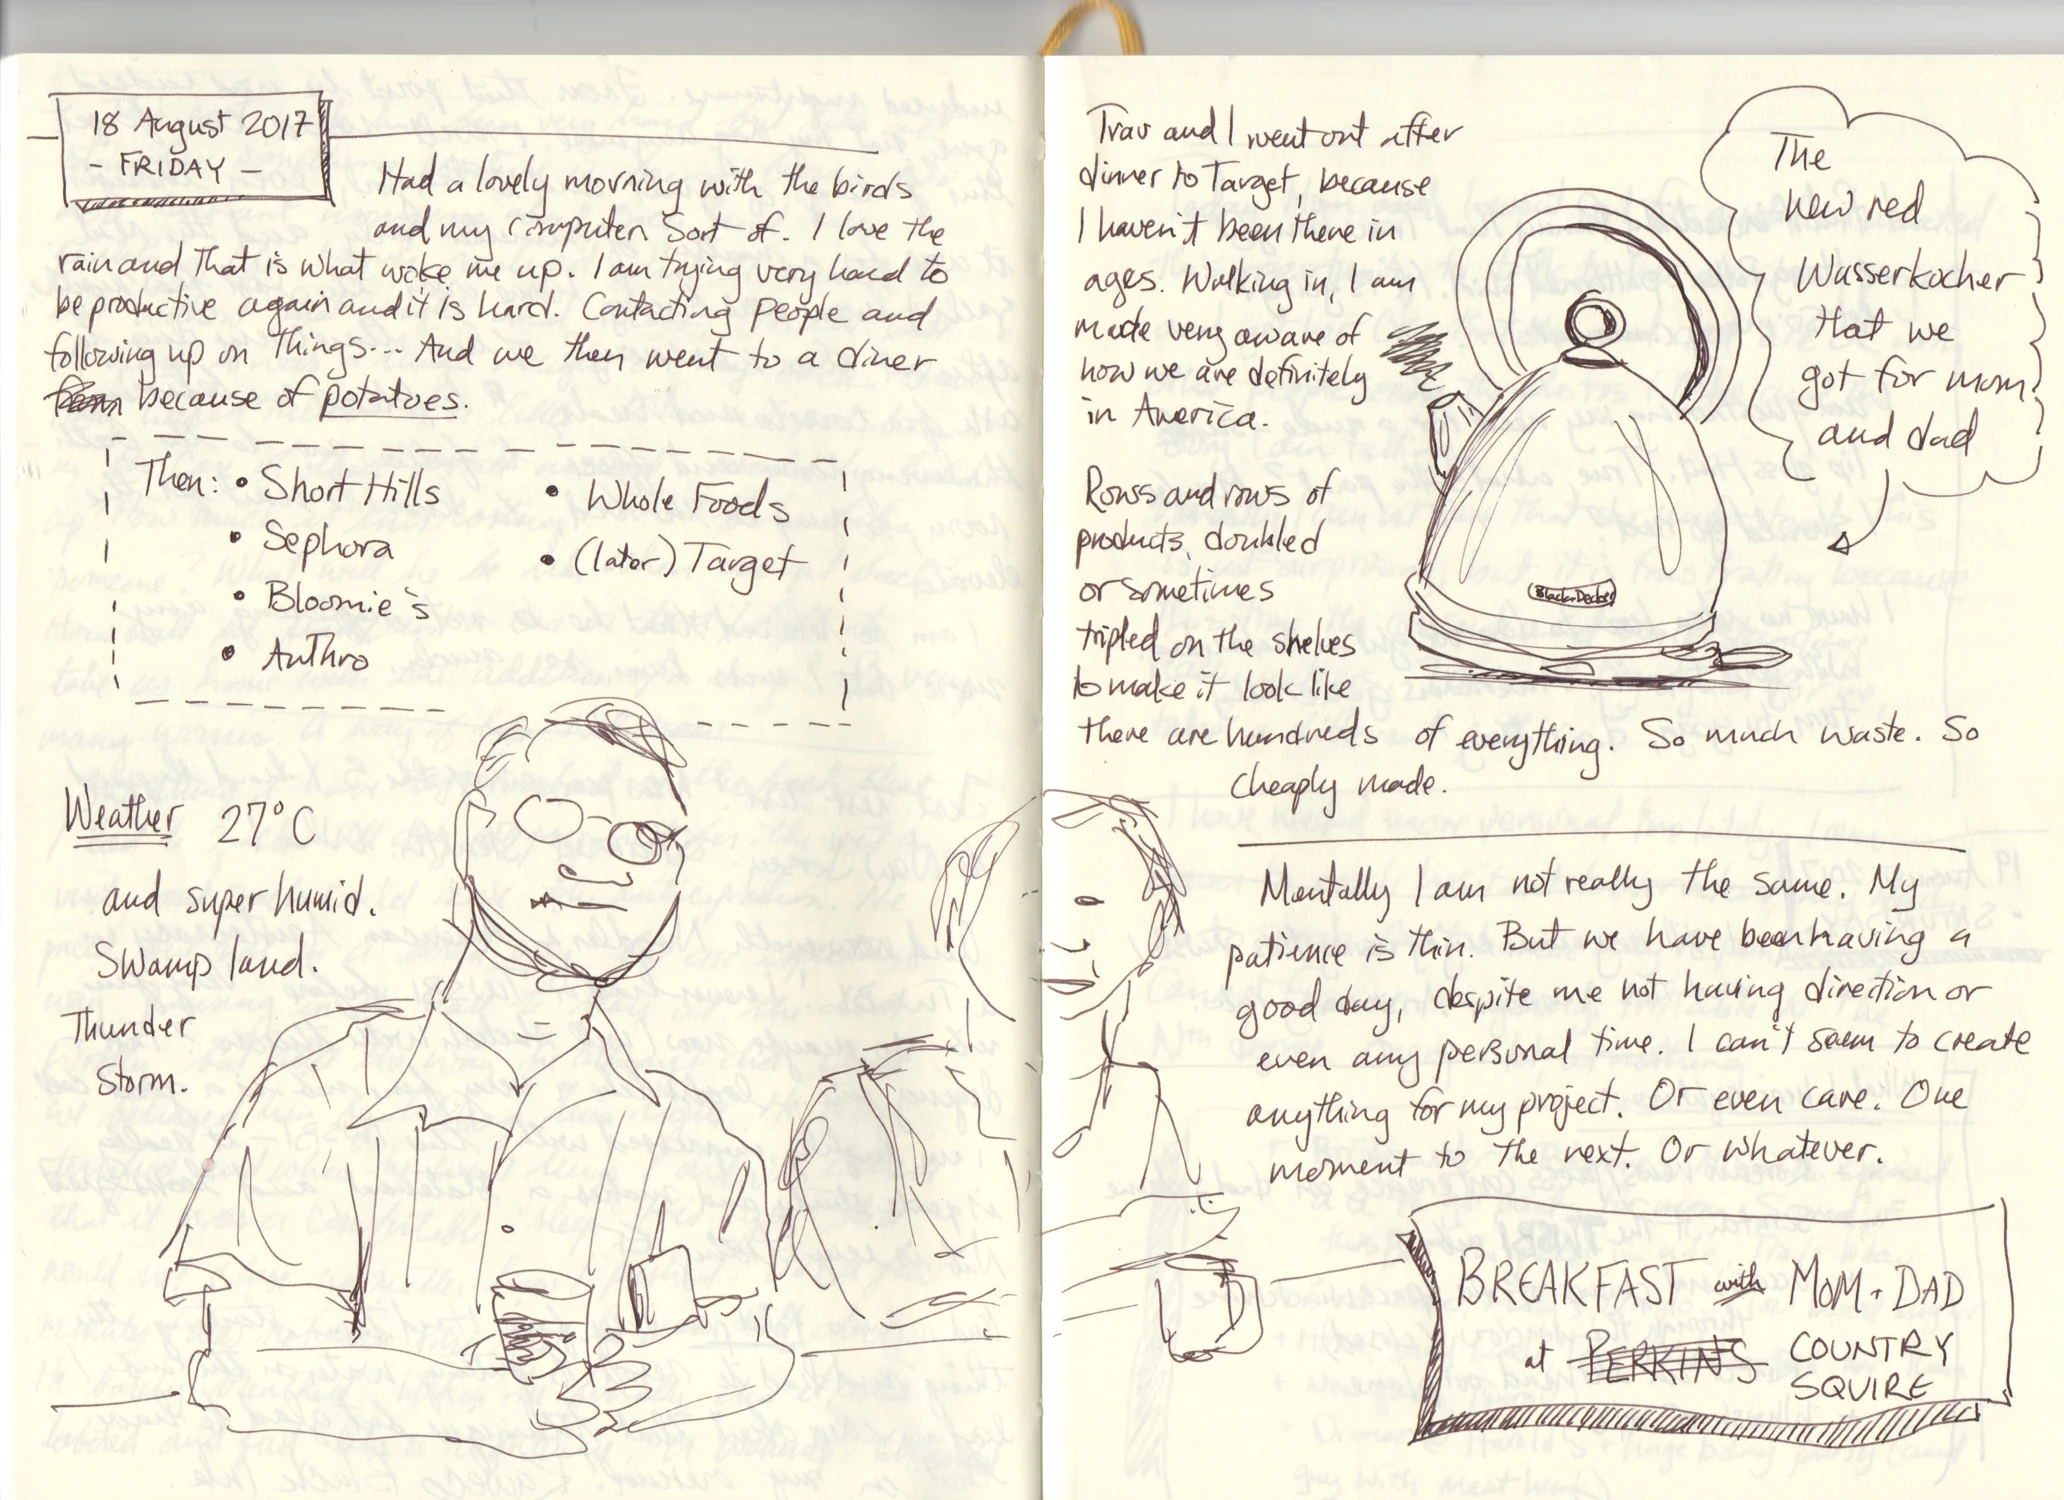 18 August 2017
- FRIDAY -
Had a lovely morning with the birds
and my computer. Sort of. I love the
rain and that is what woke me up. I am trying very hard to
be productive again and it is hard. Contacting people and
following up on things... And we then went to a diner
because of potatoes.
Then: • Short Hills
• Sephora
• Bloomie's
• Anthro
• Whole Foods
• (later) Target
Weather 27°C
and super humid.
Swamp land.
Thunder
Storm.
Trav and I went out after
dinner to Target, because
I haven't been there in
ages. Walking in, I am
made very aware of
how we are definitely
in America.
Rows and rows of
products, doubled
or sometimes
tripled on the shelves
to make it look like
there are hundreds of everything. So much waste. So
cheaply made.
The
new red
Wasserkocher
that we
got for mom
and dad
Black+Decker
Mentally I am not really the same. My
patience is thin. But we have been having a
good day, despite me not having direction or
even any personal time. I can't seem to create
anything for my project. Or even care. One
moment to the next. Or whatever.
BREAKFAST with MOM + DAD
at PERKINS COUNTRY
SQUIRE